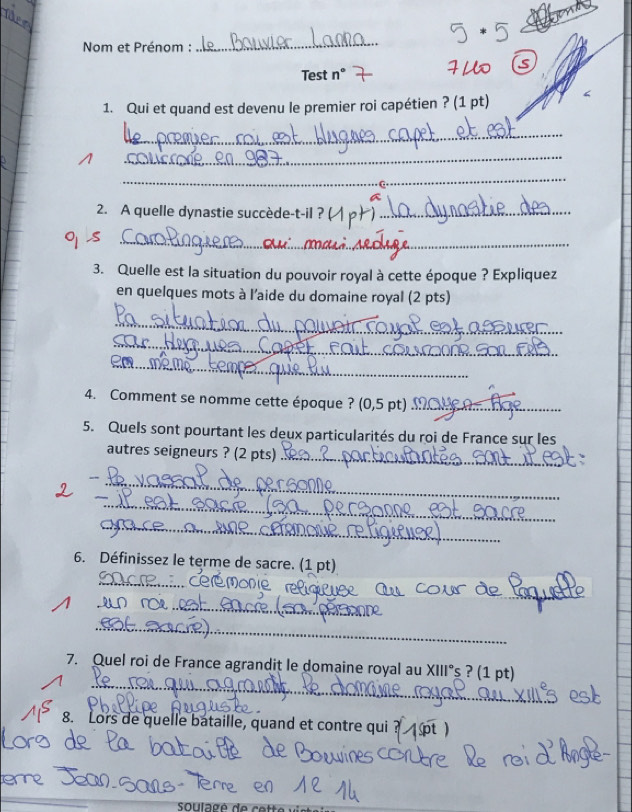 Nom et Prénom : le Bouvier Lanna
5 * 5
Test n° 7
7 S
1. Qui et quand est devenu le premier roi capétien ? (1 pt)
le premier roi est Hugues capet et est
courrone en 987.
1
2. A quelle dynastie succède-t-il ? (1 pt) la dynastie des
0,5 Carolingieres
3. Quelle est la situation du pouvoir royal à cette époque ? Expliquez
en quelques mots à l'aide du domaine royal (2 pts)
la situation du pouvoir royal est assurer
car Hugues Capet fait couronne son fils
en même temps que lui
4. Comment se nomme cette époque ? (0,5 pt) moyen-Âge
5. Quels sont pourtant les deux particularités du roi de France sur les
autres seigneurs ? (2 pts) les 2 particularités sont il est :
- le vassal de personne
2 - il est sacré (sa personne est sacre
grace a une cérémonie religieuse)
6. Définissez le terme de sacre. (1 pt)
sacre : cérémonie religieuse au cour de laquelle
1 un roi est sacre (sa personne
est sacré)
7. Quel roi de France agrandit le domaine royal au XIII°s ? (1 pt)
1 le roi qui agrandit le domaine royal au XIII°s est
Phillipe Auguste.
1,5 8. Lors de quelle bataille, quand et contre qui ? (1,5pt)
Lors de la bataille de Bouvines contre le roi d'Angle-
terre Jean-Sans-Terre en 1214